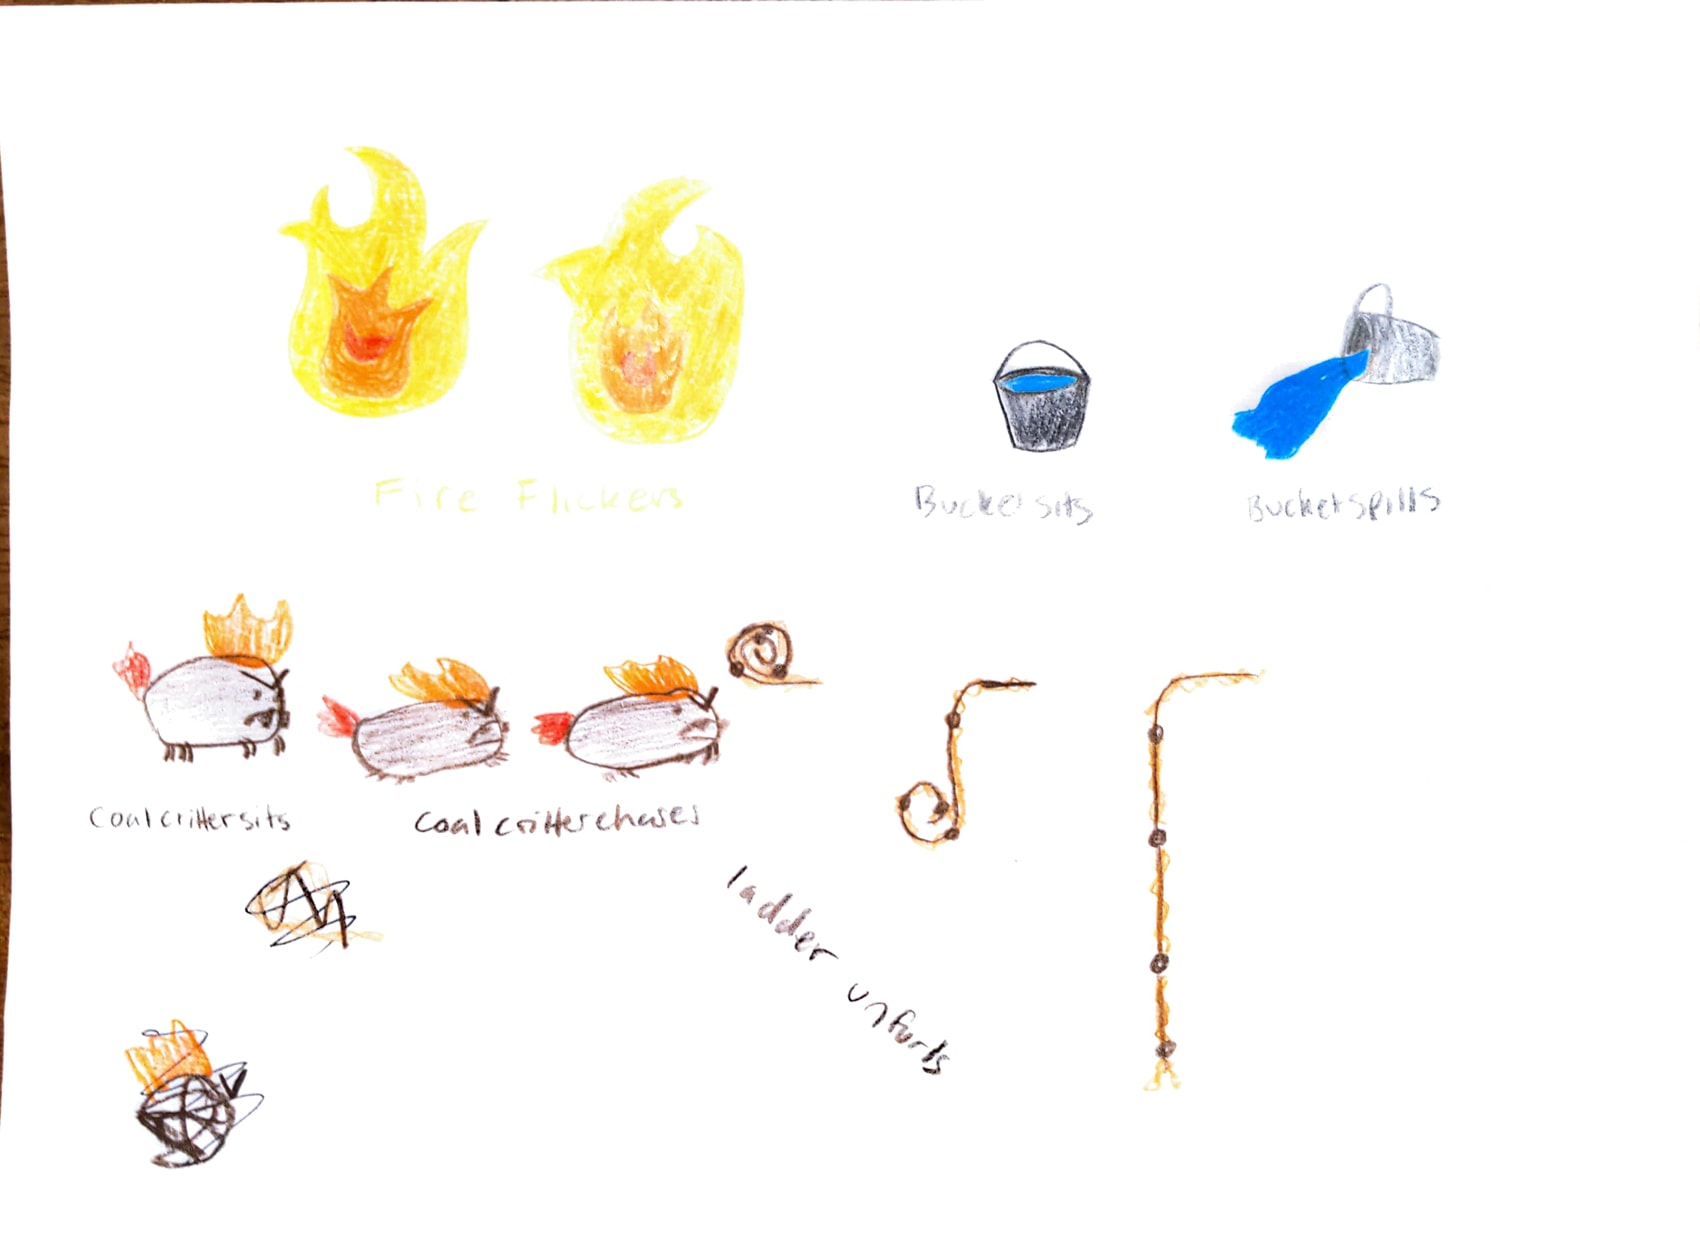 Fire Flickers
Bucket sits
Bucket spills
Coal critter sits
Coal critter chases
ladder unfurls